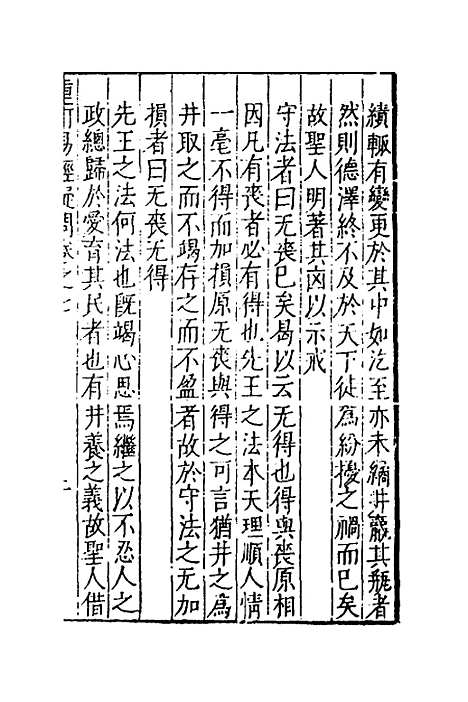 績輒有變更於其中如汔至亦未繘井羸其瓶者
然則德澤終不及於天下徒為紛擾之禍而已矣
故聖人明著其凶以示戒
守法者曰无喪已矣曷以云无得也得與喪原相
因凡有喪者必有得也先王之法本天理順人情
一毫不得而加損原无喪與得之可言猶井之為
井取之而不竭存之而不盈者故於守法之无加
損者曰无喪无得
先王之法何法也既竭心思焉繼之以不忍人之
政總歸於愛育其民者也有井養之義故聖人借
重訂易經疑問卷之七